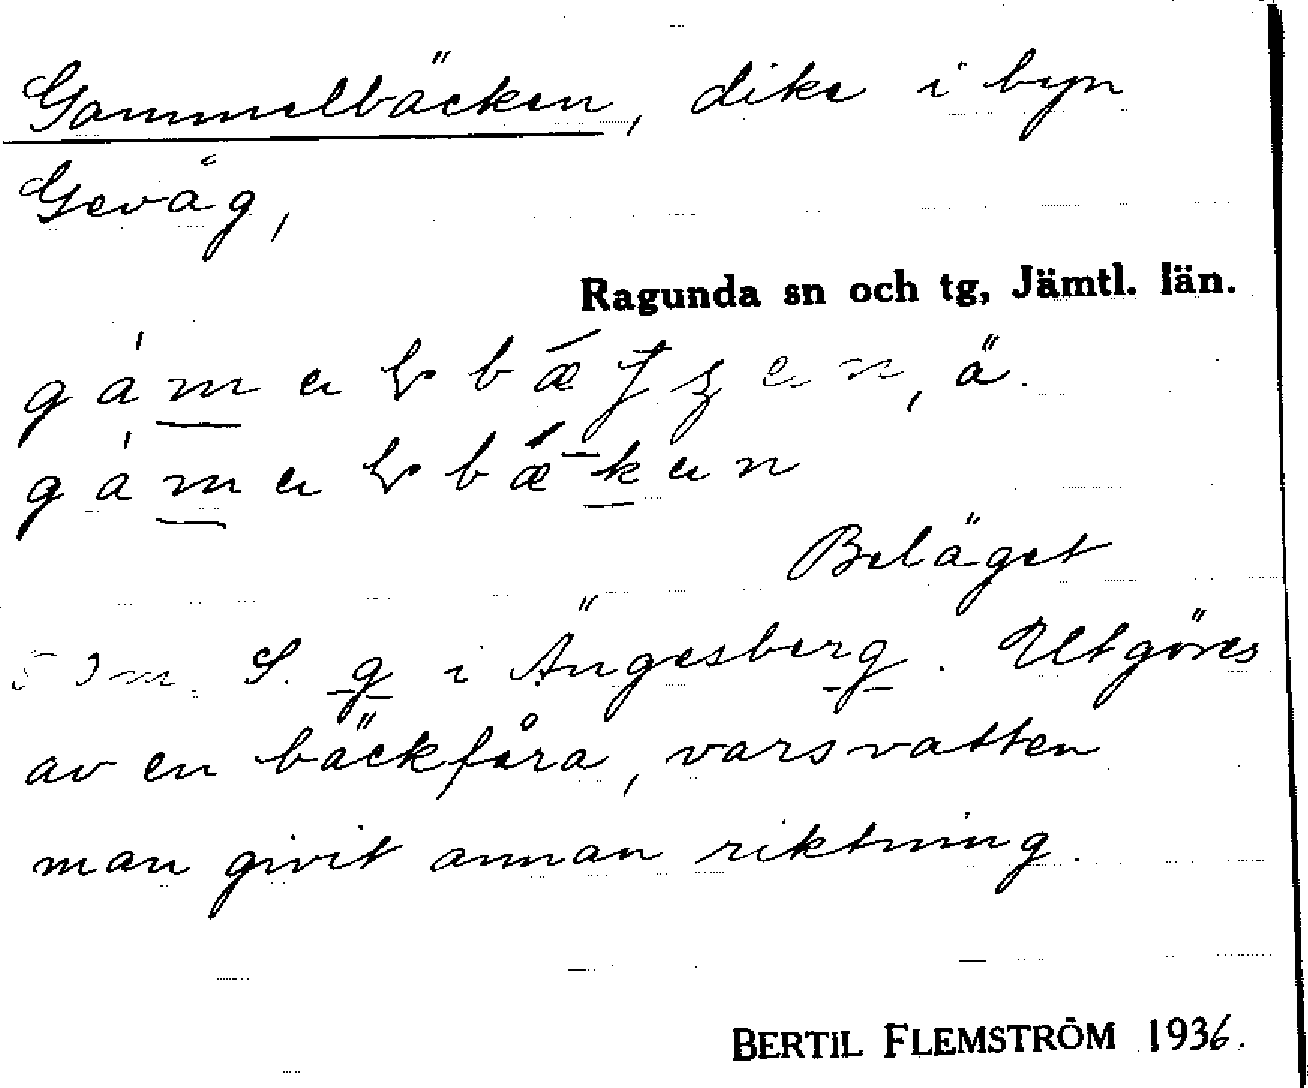 Gammelbäcken, dike i byn
Gevåg,
Ragunda sn och tg, Jämtl. län.
ä.
Beläget
50 m. S. g i Ängesberg. Utgöres
av en bäckfåra, vars vatten
man givit annan riktning.
BERTIL FLEMSTRÖM 1936.